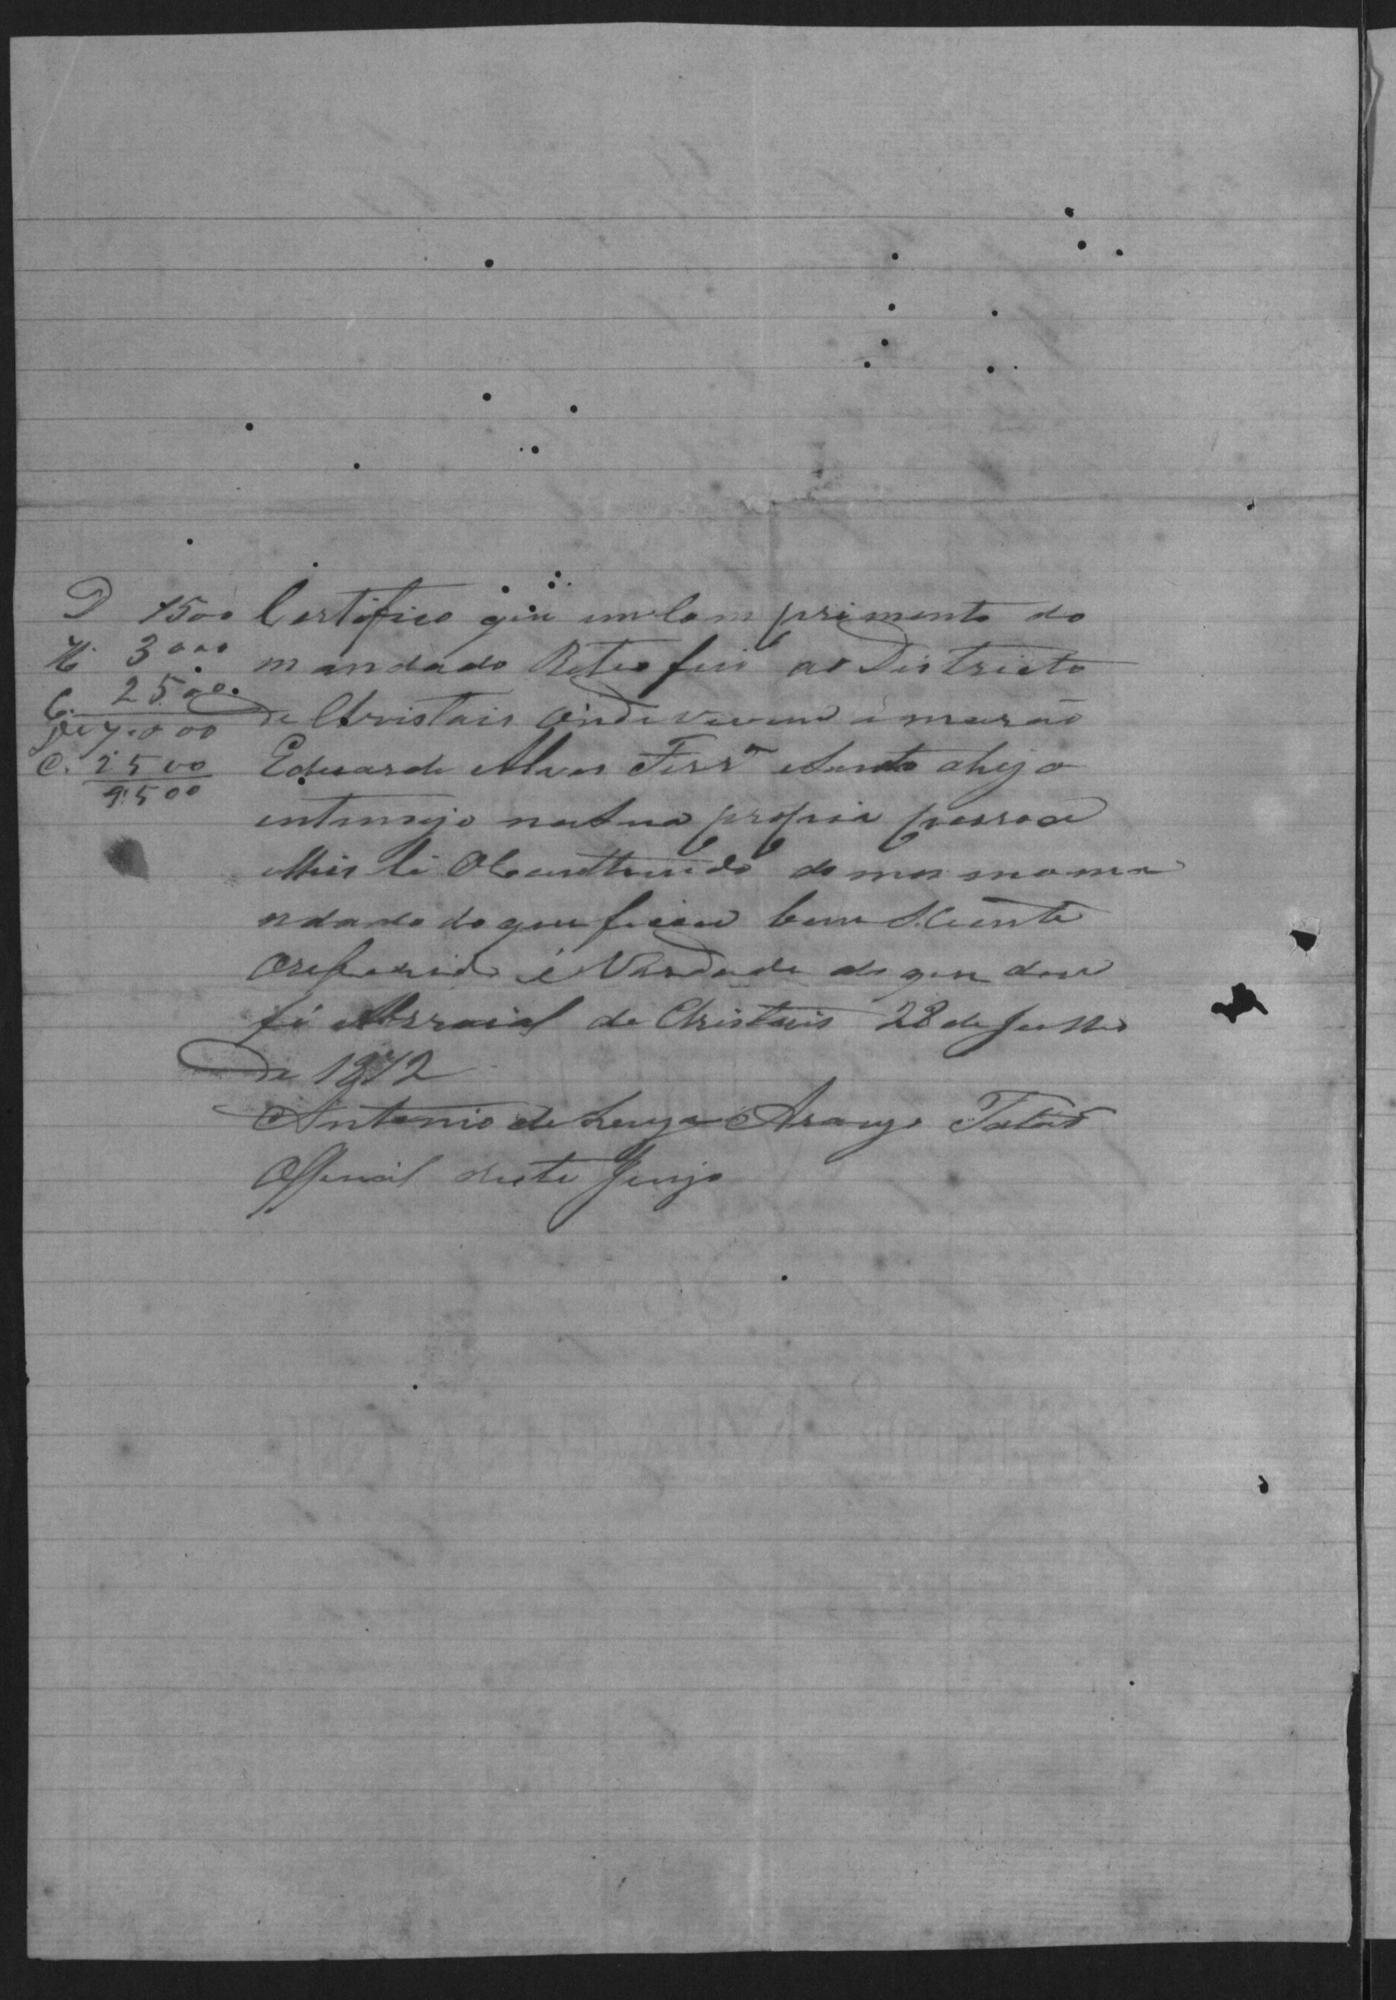 D 1500
H. 3000
C. 2500
De 7.000
C. 2500
9.500
Certifico que em Com primento do
mandado Retro fui ao Districto
de Christais onde
Eduardo Alves Ferr.ª e ahi
na Sua propria pessoa
li do mesmo ma
ndado do que ficou bem Sciente
O referido é Verdade do que dou
fé Arraial de Christais 28 de Julho
de 1872
Antonio de Araujo
Official deste Juizo